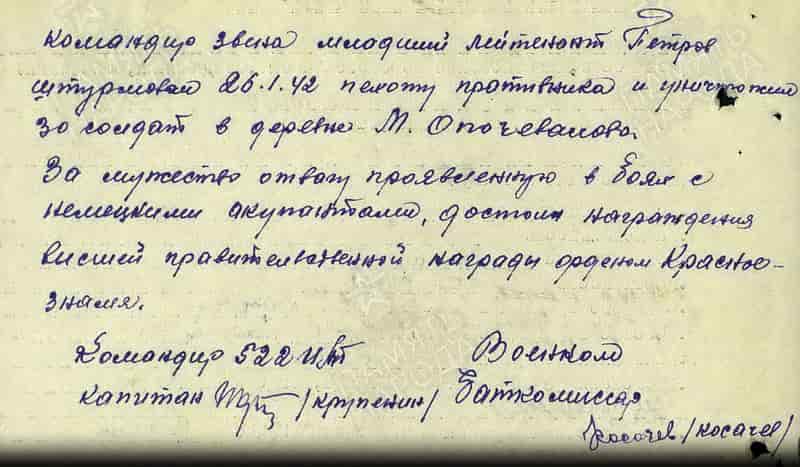 командир звена младший лейтенант Петров
штурмовал 26.1.42 пехоту противника и уничтожил
30 солдат в деревне М. Опочевалова.
За мужество отвагу проявленную в боях с
немецкими акупантами, достоин награждения
высшей правительственной награды орденом Красное-
знамя.
Командир 522 Военком
капитан /крупенин/ Баткомиссар
Косачев /косачев/